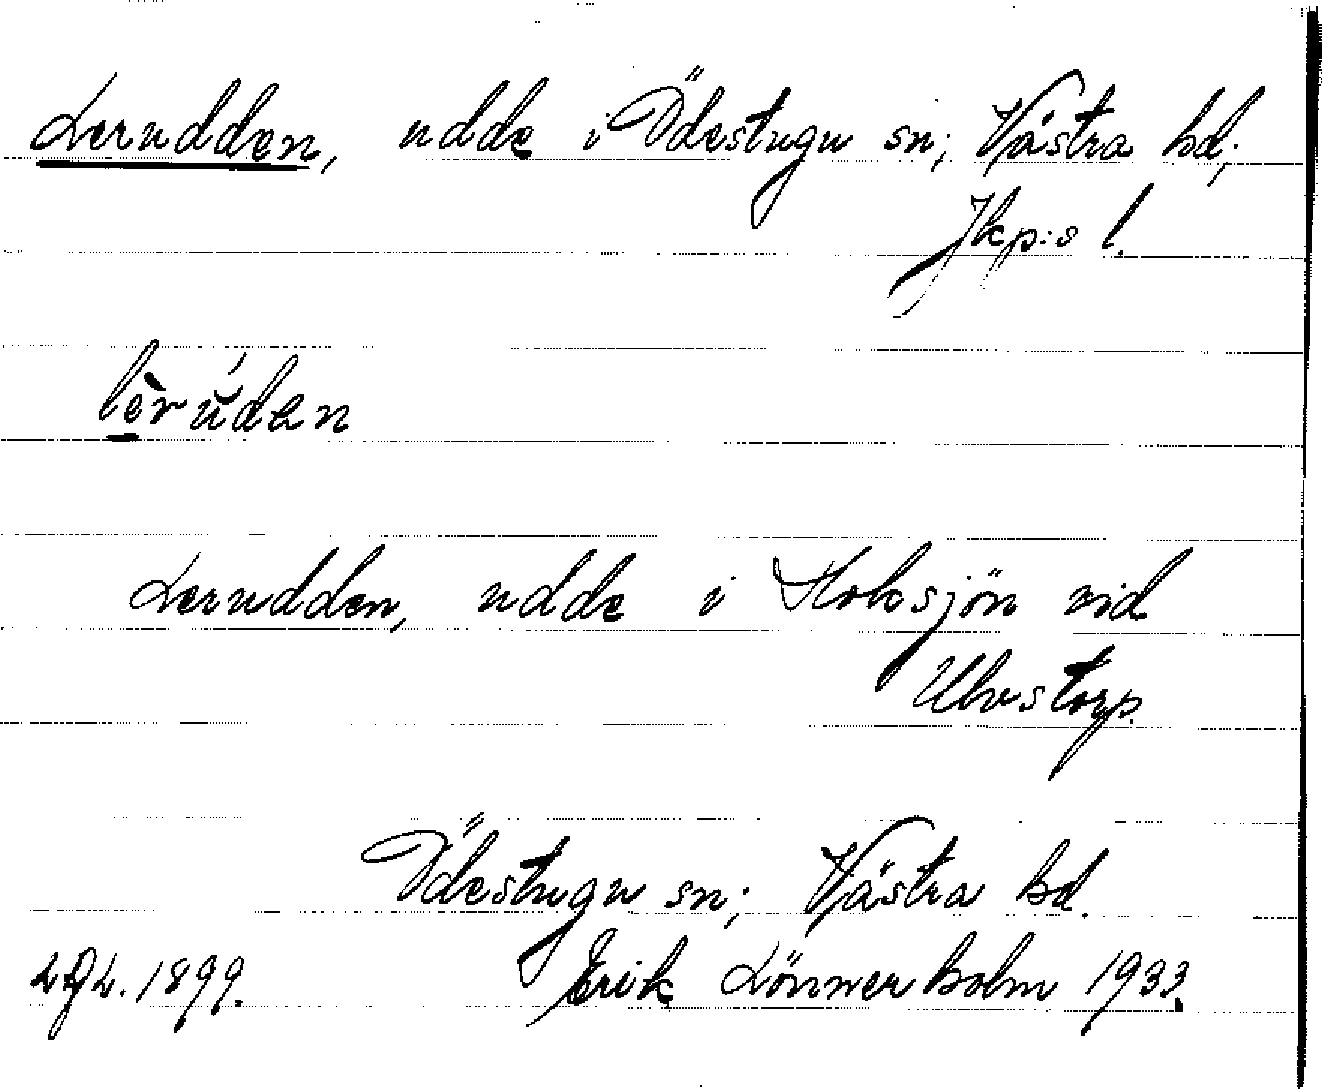 Lerudden, udde i Ödestugu sn; Västra hd;
Jkp:s l.
lèrúden
Lerudden, udde i Hoksjön vid
Ulvstorp.
Ödestugu sn; Västra hd.
1899. Erik Lönnerholm 1933.